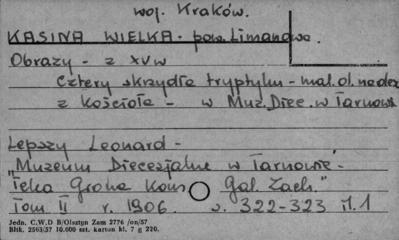 woj. Kraków.
KASINA WIELKA - pow. Limanowa.
Obrazy - z XV w
Cztery skrzydła tryptyku - mal. ol. na des
z Kościoła - w Muz. Diec. w Tarnowi
Lepszy Leonard -
"Muzeum Diecezjalne w Tarnowie -
Teka Grona Kons Gal. Zach."
Tom II r. 1906. s. 322-323 il. 1
Jedn. C.W.D B/Olsztyn Zam 2776 /on/57
Bltk. 2563/57 10.000 szt. karton kl. 7 g 220.